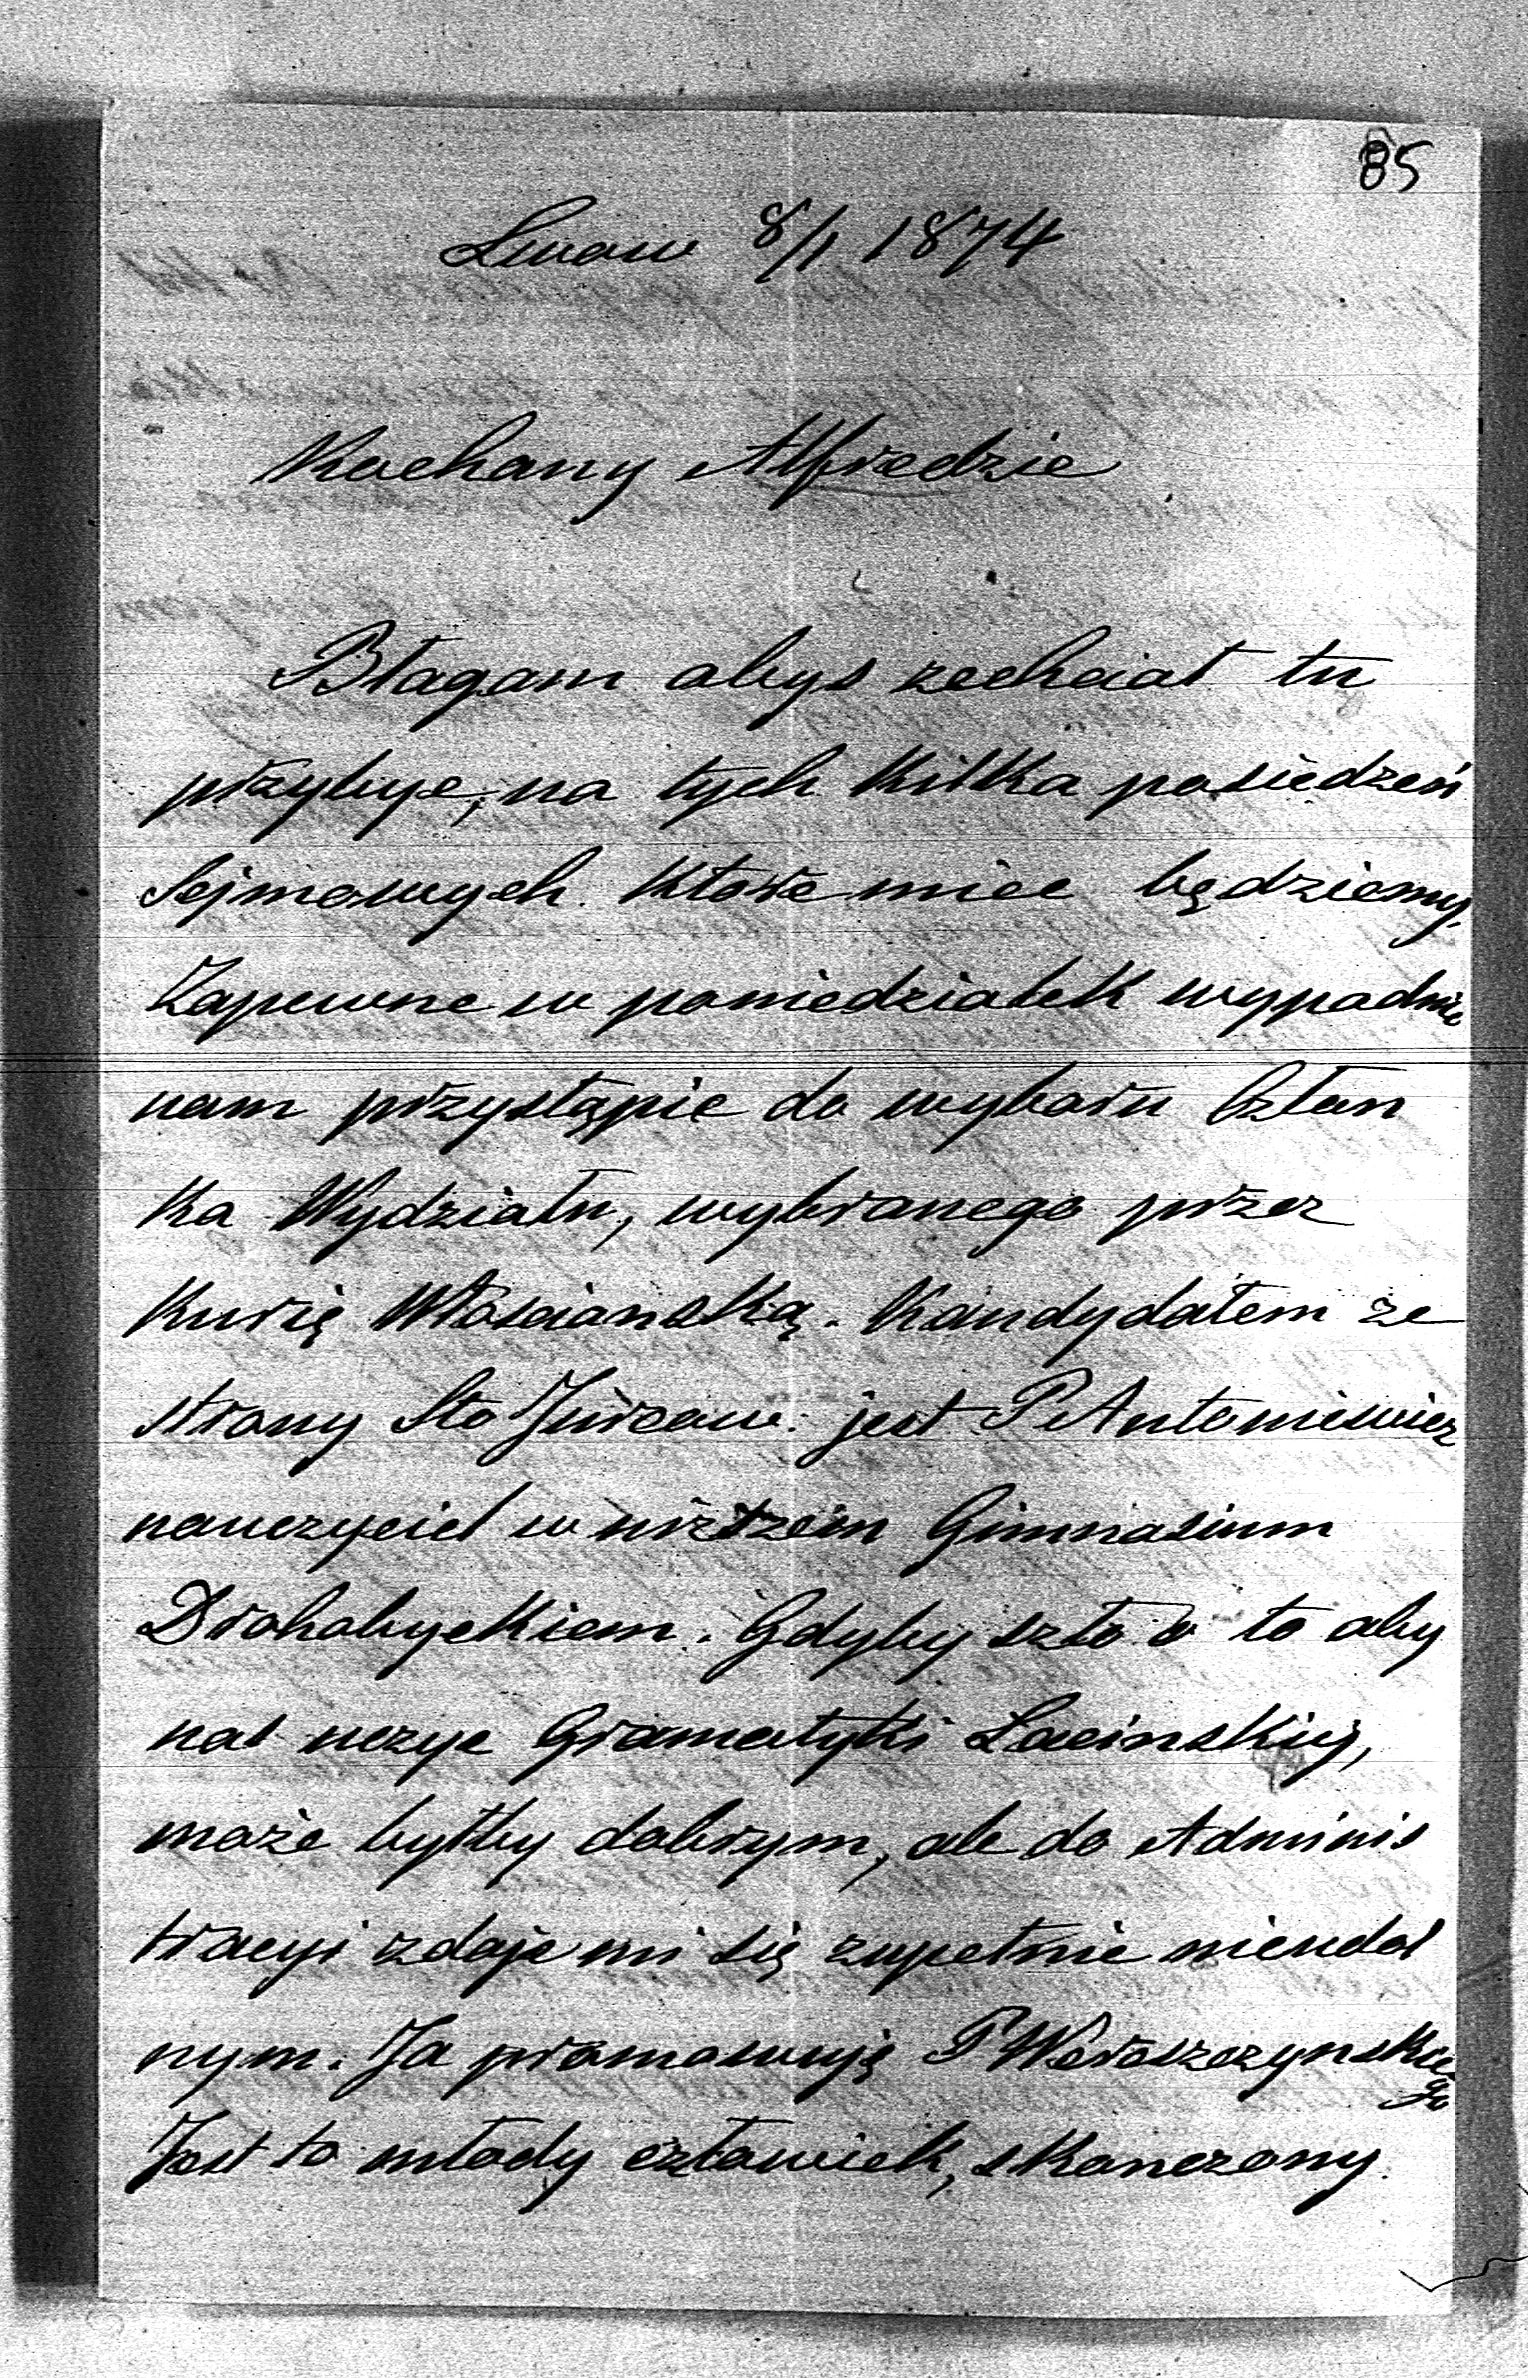 85
Lwow 8/1 1874
Kochany Alfredzie
Błagam abys zechciał tu
przybyc, na tych kilka posiedzeń
Sejmowych ktore miec będziemy.
Zapewne w poniedziałek wypadnie
nam przystąpic do wyboru Człon
ka Wydziału, wybranego przez
Kurię Włosciańską. Kandydatem ze
strony Sto Jurcow jest P Antoniewicz
nauczyciel w niższem Gimnasium
Drohobyckiem. Gdyby szło o to aby
nas uczyc Gramatyki Lacinskiej,
może byłby dobrym, ale do Adminis
tracyi zdaje mi się zupełnie nieudol
nym. Ja promowuję P Wereszczynskie
go
Jest to młody człowiek, skonczony